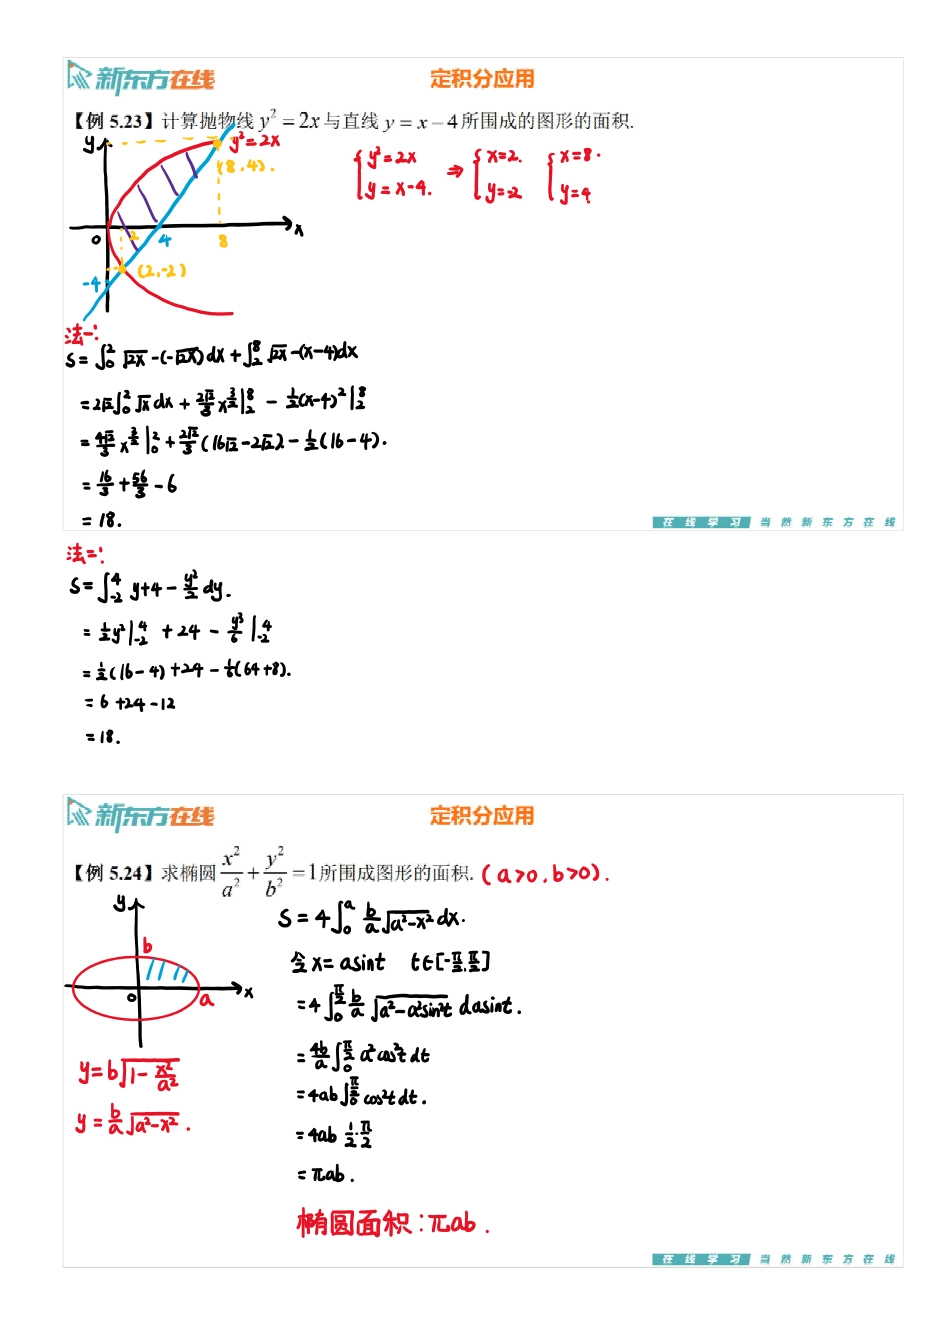 新东方在线
定积分应用
【例 5.23】计算抛物线 y² = 2x 与直线 y = x − 4 所围成的图形的面积.
y
y²=2x
(8,4).
{ y²=2x
y=x-4. ⇒ { x=2.
y=-2 { x=8.
y=4
0 2 4 8 x
(2,-2)
-4
法一:
S=∫₀² √2x-(-√2x)dx+∫₂⁸ √2x-(x-4)dx
=2√2∫₀² √x dx + 2√2/3 x^(3/2)|₂⁸ - 1/2(x-4)²|₂⁸
=4√2/3 x^(3/2)|₀² + 2√2/3 (16√2-2√2) - 1/2(16-4).
=16/3+56/3-6
=18.
在线学习 当然新东方在线
法二:
S=∫₋₂⁴ y+4-y²/2 dy.
=1/2y²|₋₂⁴ +24 - y³/6|₋₂⁴
=1/2(16-4)+24-1/6(64+8).
=6+24-12
=18.
新东方在线
定积分应用
【例 5.24】求椭圆 x²/a² + y²/b² = 1 所围成图形的面积. (a>0.b>0).
y
b
0 a x
y=b√(1-x²/a²)
y=b/a√(a²-x²).
S=4∫₀ᵃ b/a √(a²-x²) dx.
令x=asint t∈[-π/2.π/2]
=4∫₀^(π/2) b/a √(a²-a²sin²t) dasint.
=4b/a ∫₀^(π/2) a²cos²t dt
=4ab∫₀^(π/2) cos²t dt.
=4ab 1/2·π/2
=πab.
椭圆面积:πab.
在线学习 当然新东方在线